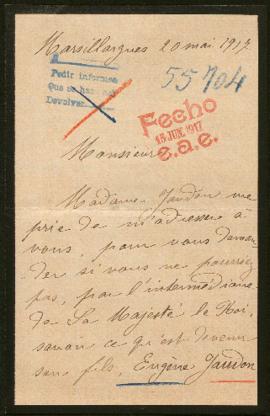 Marsillargues 20 mai 1917.
Pedir informes
Devolver
55704
Fecho
15 JUN. 1917
e.a.e.
Monsieur
Madame Jaudon me
prie de m'adresser à
vous, pour vous deman-
der si vous ne pourriez
pas, par l'intermédiaire
de Sa Majesté le Roi,
savoir ce qu'est devenu
son fils, Eugène Jaudon